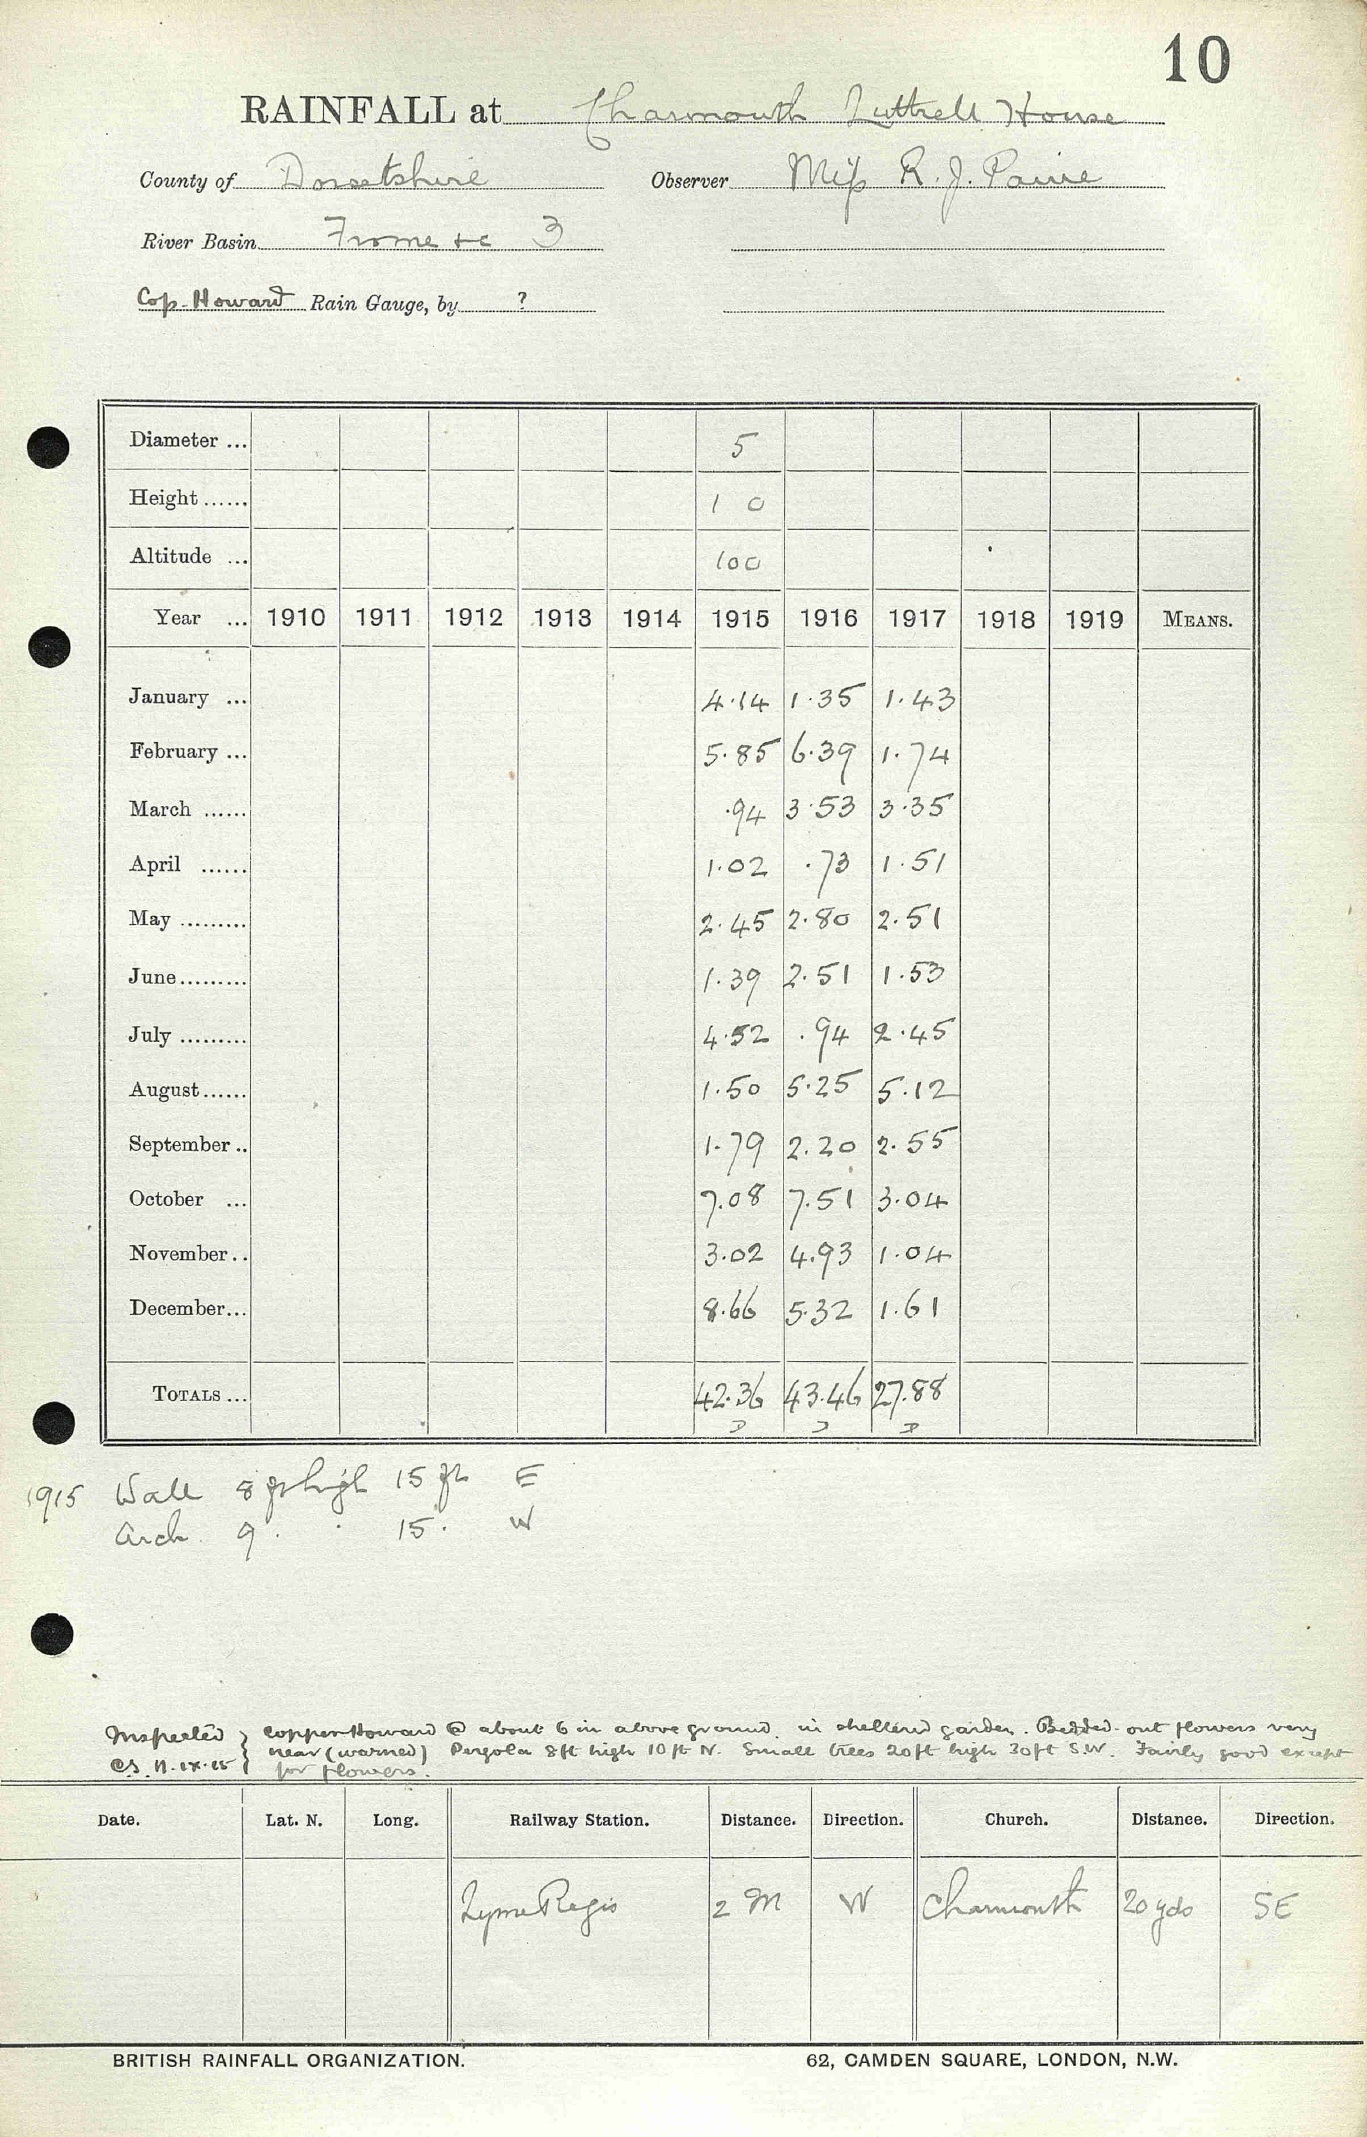 10
RAINFALL at Charmouth Luttrell House
County of Dorsetshire Observer Miss R. J. Paine
River Basin Frome &c 3
Cop. Howard Rain Gauge, by ?
Diameter ... 5
Height ...... 1 0
Altitude ... 100
Year ... 1910 1911 1912 1913 1914 1915 1916 1917 1918 1919 MEANS.
January ... 4.14 1.35 1.43
February ... 5.85 6.39 1.74
March ...... .94 3.53 3.35
April ...... 1.02 .73 1.51
May ......... 2.45 2.80 2.51
June ......... 1.39 2.51 1.53
July ......... 4.52 .94 2.45
August ...... 1.50 5.25 5.12
September .. 1.79 2.20 2.55
October ... 7.08 7.51 3.04
November .. 3.02 4.93 1.04
December ... 8.66 5.32 1.61
TOTALS ... 42.36 43.46 27.88
D D D
1915 Wall 8 ft high 15 ft E
Arch 9 . . 15 . W
Inspected } Copper Howard @ about 6 in above ground in sheltered garden. Bedded-out flowers very
CS 11.ix.15 } near (warned) Pergola 8ft high 10ft N. Small trees 20ft high 30ft S.W. Fairly good except
for flowers.
Date. Lat. N. Long. Railway Station. Distance. Direction. Church. Distance. Direction.
Lyme Regis 2 M W Charmouth 20 yds SE
BRITISH RAINFALL ORGANIZATION. 62, CAMDEN SQUARE, LONDON, N.W.